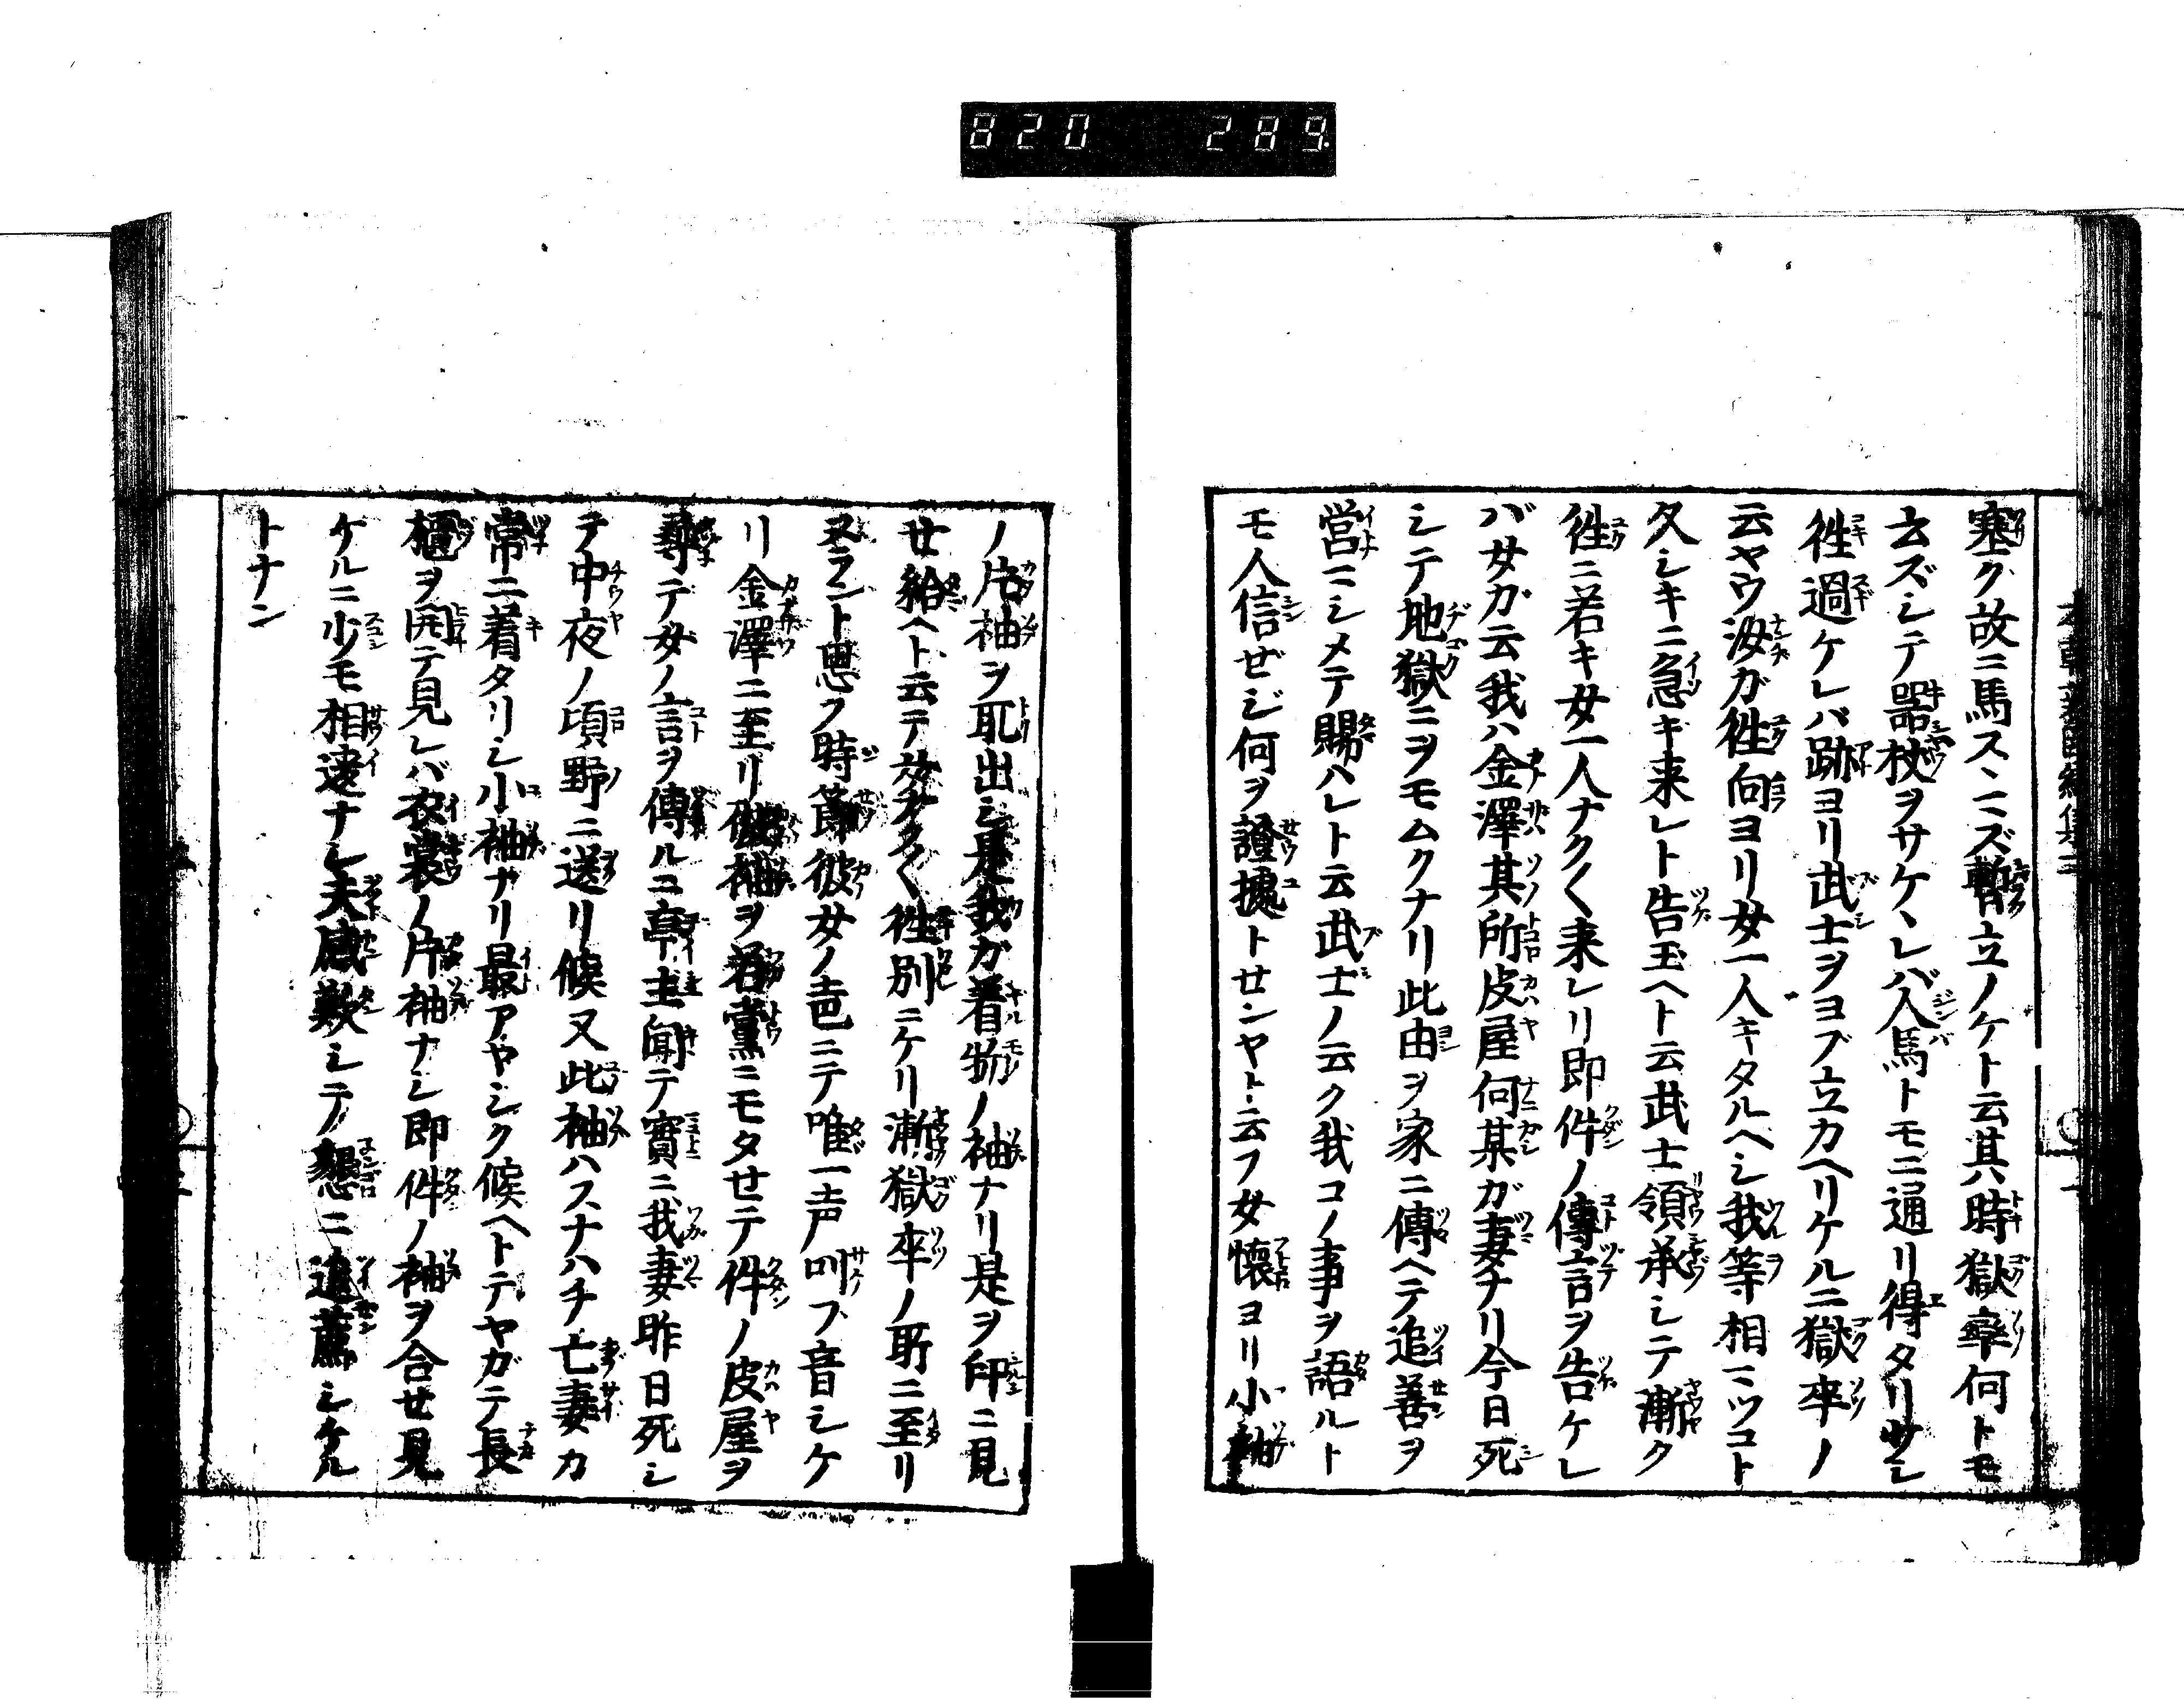 820 289
塞ク故ニ馬スヽミズ暫立ノケト云其時獄率何トモ
云ズシテ器杖ヲサケヽレバ人馬トモニ通リ得タリサレ
徃過ケレバ跡ヨリ武士ヲヨブ立カヘリケルニ獄卒ノ
云ヤウ汝ガ徃向ヨリ女一人キタルヘシ我等相ミツコト
久シキニ急キ来レト告玉ヘト云武士領承シテ漸ク
徃ニ若キ女一人ナク〱来レリ即件ノ傳言ヲ告ケレ
バ女ガ云我ハ金澤其所皮屋何某ガ妻ナリ今日死
シテ地獄ニヲモムクナリ此由ヲ家ニ傳ヘテ追善ヲ
営ミシメテ賜ハレト云武士ノ云ク我コノ事ヲ語ルト
モ人信ゼジ何ヲ證據トセンヤト云フ女懐ヨリ小袖
ノ片袖ヲ取出シ是我ガ着物ノ袖ナリ是ヲ印ニ見
せ給ヘト云テ女ナク〱徃別ニケリ漸獄卒ノ所ニ至リ
ヌラント思フ時節彼女ノ声ニテ唯一声叫フ音シケ
リ金澤ニ至リ彼袖ヲ若黨ニモタせテ件ノ皮屋ヲ
尋テ女ノ言ヲ傳ルコ亭主聞テ實ニ我妻昨日死シ
テ中夜ノ頃野ニ送リ候又此袖ハスナハチ亡妻カ
常ニ着タリシ小袖ナリ最アヤシク候ヘトテヤガテ長
櫃ヲ開テ見レバ衣裳ノ片袖ナシ即件ノ袖ヲ合せ見
ケルニ少モ相違ナシ夫感歎シテ懇ニ追薦シケル
トナン